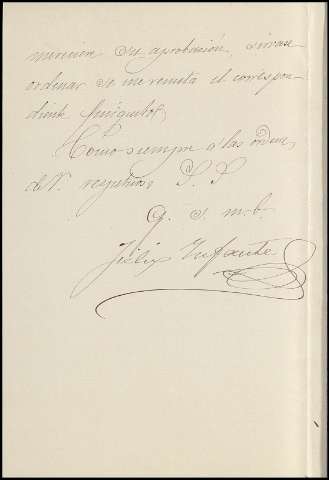 mereciere su aprobación, sirvase
ordenar se me remita el correspon-
diente finiquito,
Como siempre a las orden,
de V. respetuoso S. S.
Q. S. m. b.
Felix Infante